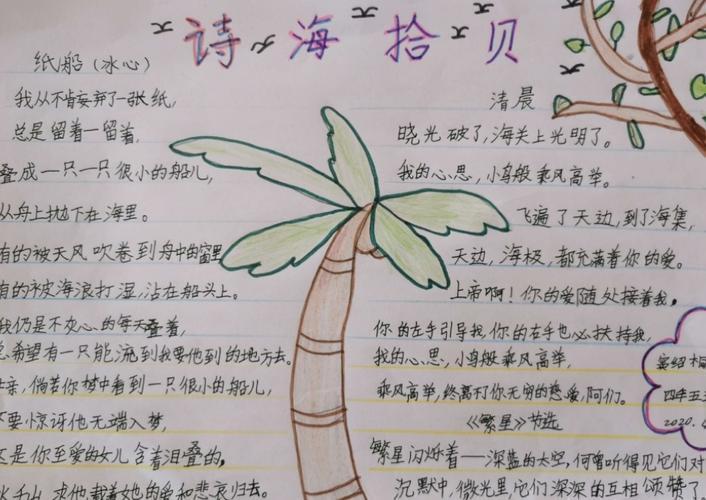 诗海拾贝
纸船（冰心）
我从不肯妄弃了一张纸，
总是留着一留着，
叠成一只一只很小的船儿，
从舟上抛下在海里。
有的被天风吹卷到舟中的窗里
有的被海浪打湿，沾在船头上。
我仍是不灰心的每天叠着，
总希望有一只能流到我要他到的地方去。
母亲，倘若你梦中看到一只很小的船儿，
不要惊讶他无端入梦，
这是你至爱的女儿含着泪叠的，
求他载着她的爱和悲哀归去。
清晨
晓光破了，海关上光明了。
我的心思，小鸟般乘风高举。
飞遍了天边，到了海集，
天边，海极，都充满着你的爱。
上帝啊！你的爱随处接着我，
你的左手引导我，你的右手也必扶持我，
我的心思，小鸟般乘风高举，
乘风高举，终离不了你无穷的慈爱，阿们。
《繁星》节选
繁星闪烁着——深蓝的太空，何曾听得见它们对
沉默中，微光里它们深深的互相颂赞了
四年五
2020.